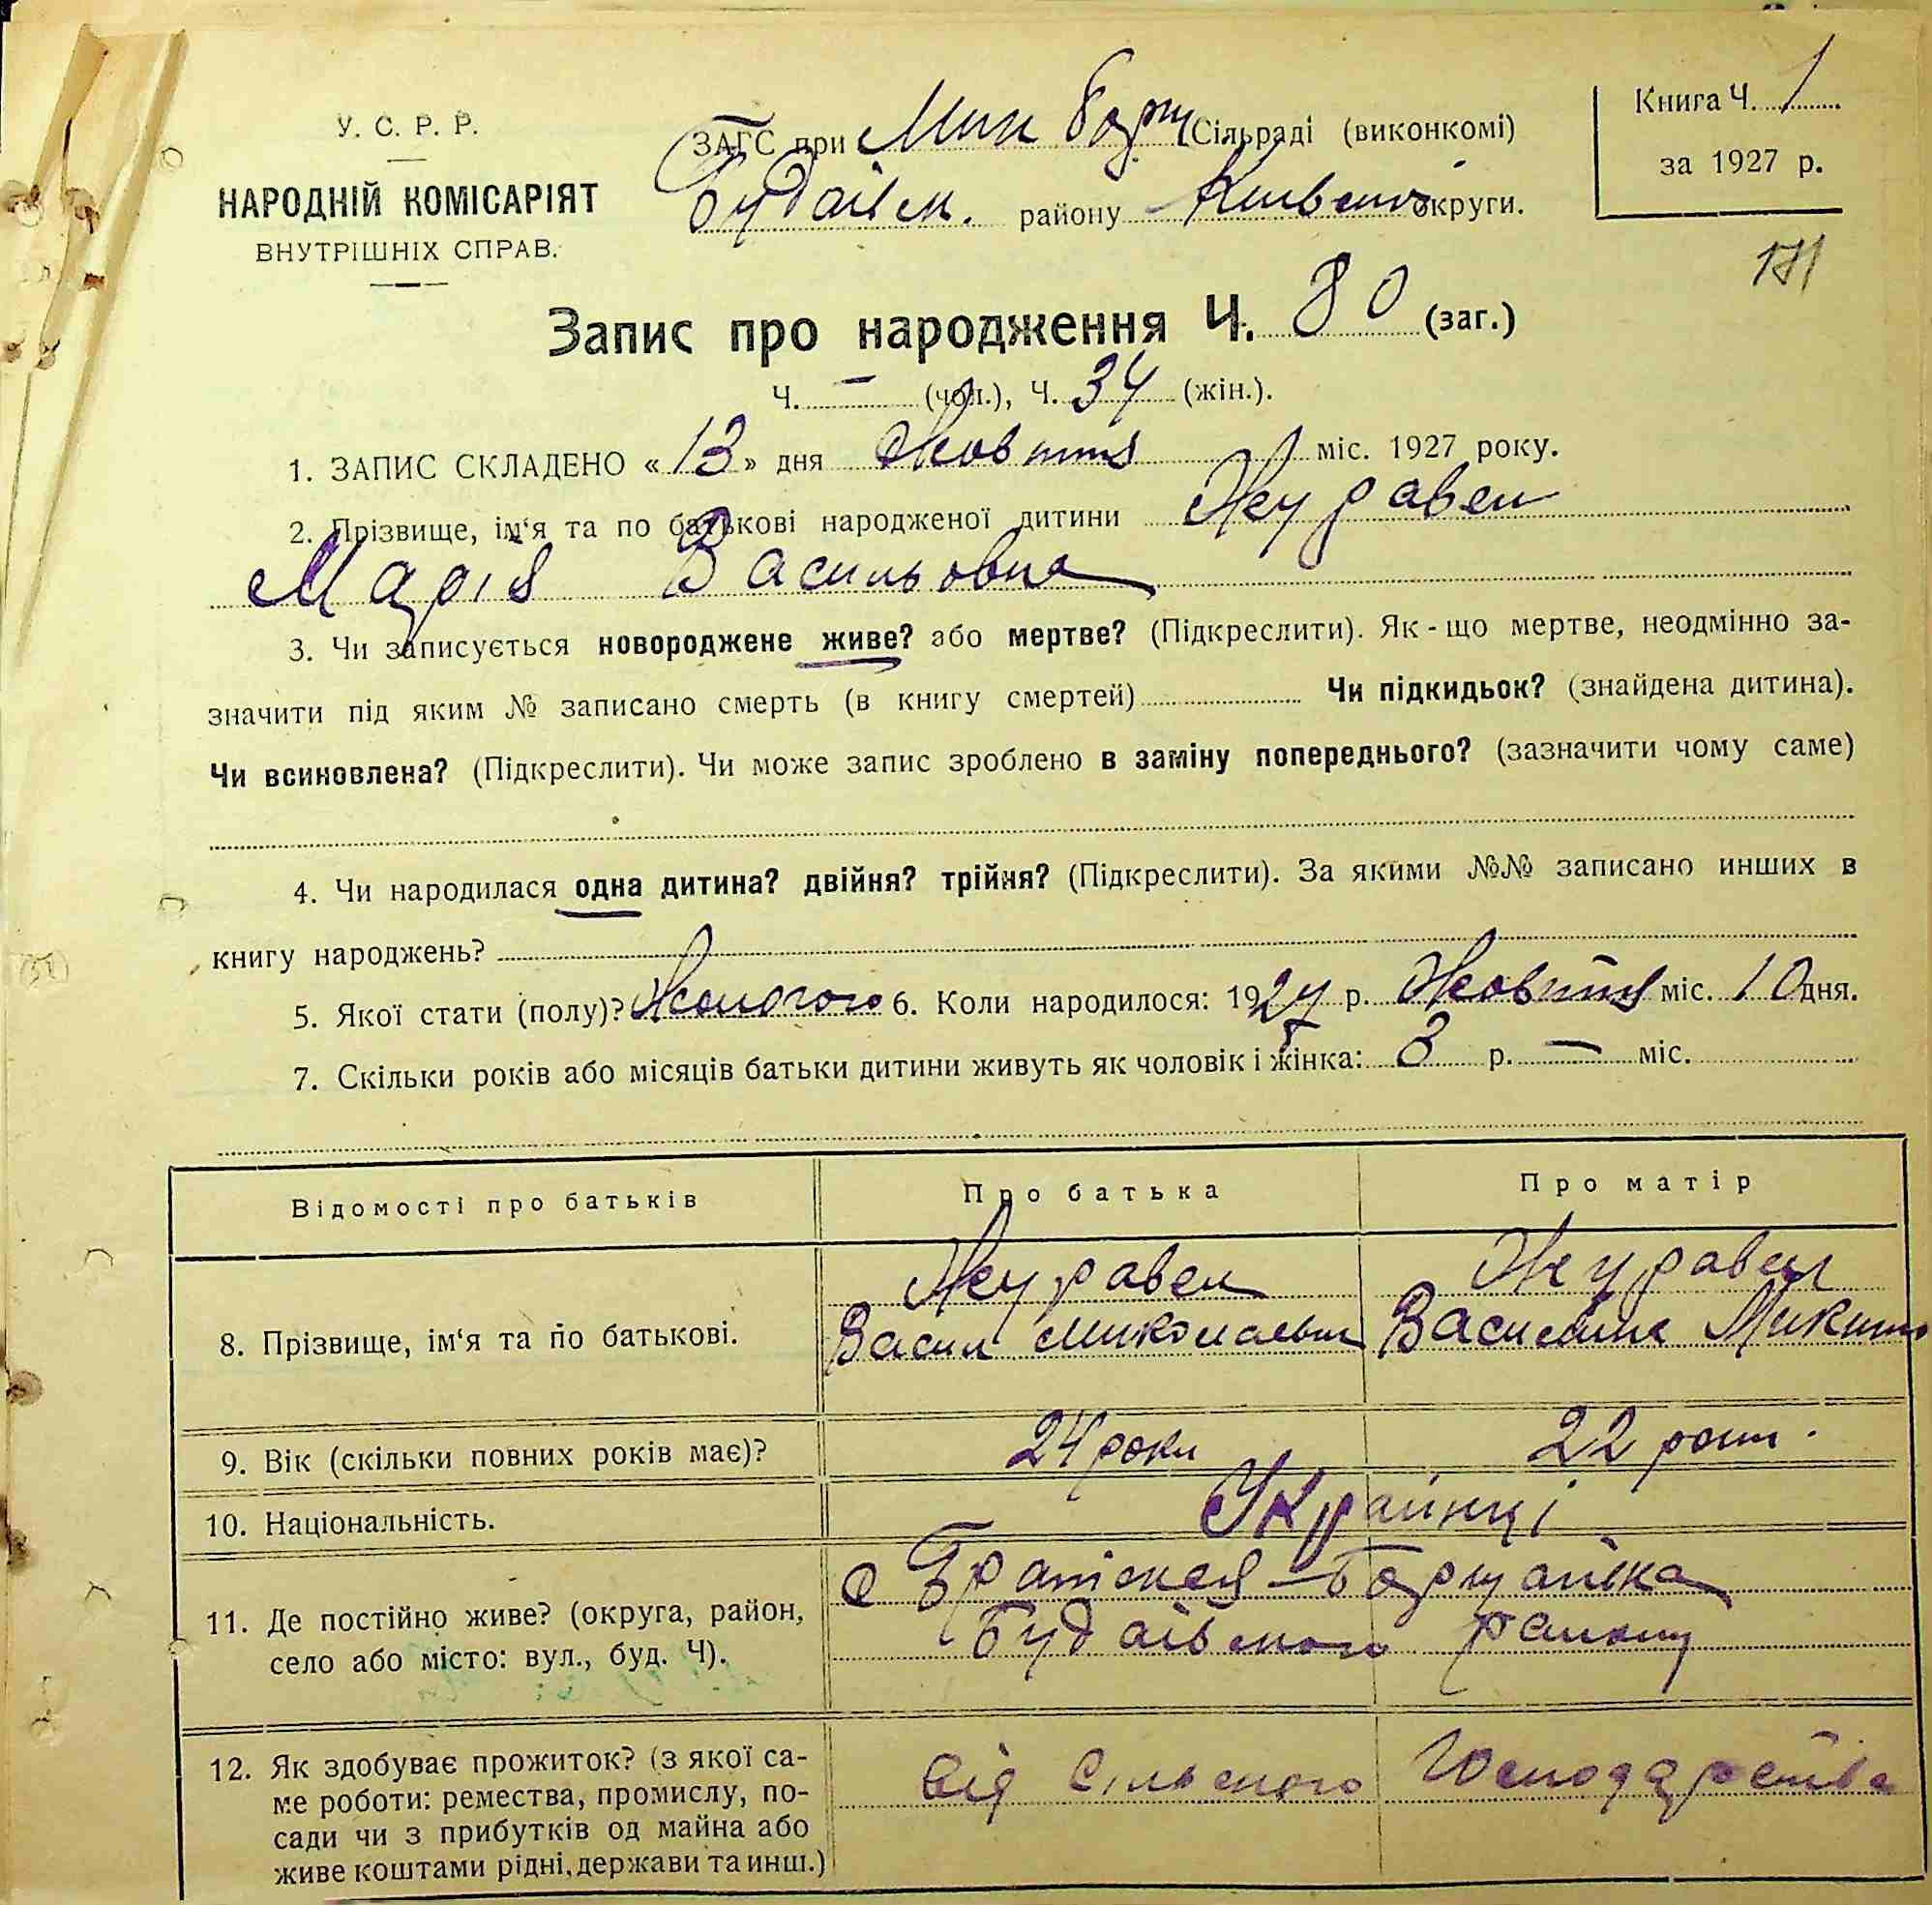 У. С. Р. Р.
НАРОДНІЙ КОМІСАРІЯТ
ВНУТРІШНІХ СПРАВ.
ЗАГС при Мик Борщ Сільраді (виконкомі)
Будаївськ. району Київської округи.
Книга Ч. 1
за 1927 р.
171
Запис про народження Ч. 80 (заг.)
Ч. — (чол.), Ч. 34 (жін.).
1. ЗАПИС СКЛАДЕНО «13» дня Жовтня міс. 1927 року.
2. Прізвище, ім‘я та по батькові народженої дитини Журавел
Марія Васильовна
3. Чи записується новороджене живе? або мертве? (Підкреслити). Як - що мертве, неодмінно за-
значити під яким № записано смерть (в книгу смертей) Чи підкидьок? (знайдена дитина).
Чи всиновлена? (Підкреслити). Чи може запис зроблено в заміну попереднього? (зазначити чому саме)
4. Чи народилася одна дитина? двійня? трійня? (Підкреслити). За якими №№ записано инших в
книгу народжень?
5. Якої стати (полу)? Жіночого 6. Коли народилося: 1927 р. Жовтня міс. 10 дня.
7. Скільки років або місяців батьки дитини живуть як чоловік і жінка: 3 р. — міс.
Відомості про батьків Про батька Про матір
8. Прізвище, ім‘я та по батькові.
Журавел Журавел
Васил Микольев Василина Микит
9. Вік (скільки повних років має)? 24 роки 22 роки.
10. Національність. Українці
11. Де постійно живе? (округа, район,
село або місто: вул., буд. Ч).
с Братская-Борщагівка
Будаївського району
12. Як здобуває прожиток? (з якої са-
ме роботи: ремества, промислу, по-
сади чи з прибутків од майна або
живе коштами рідні, держави та инш.)
від сільського Господарства